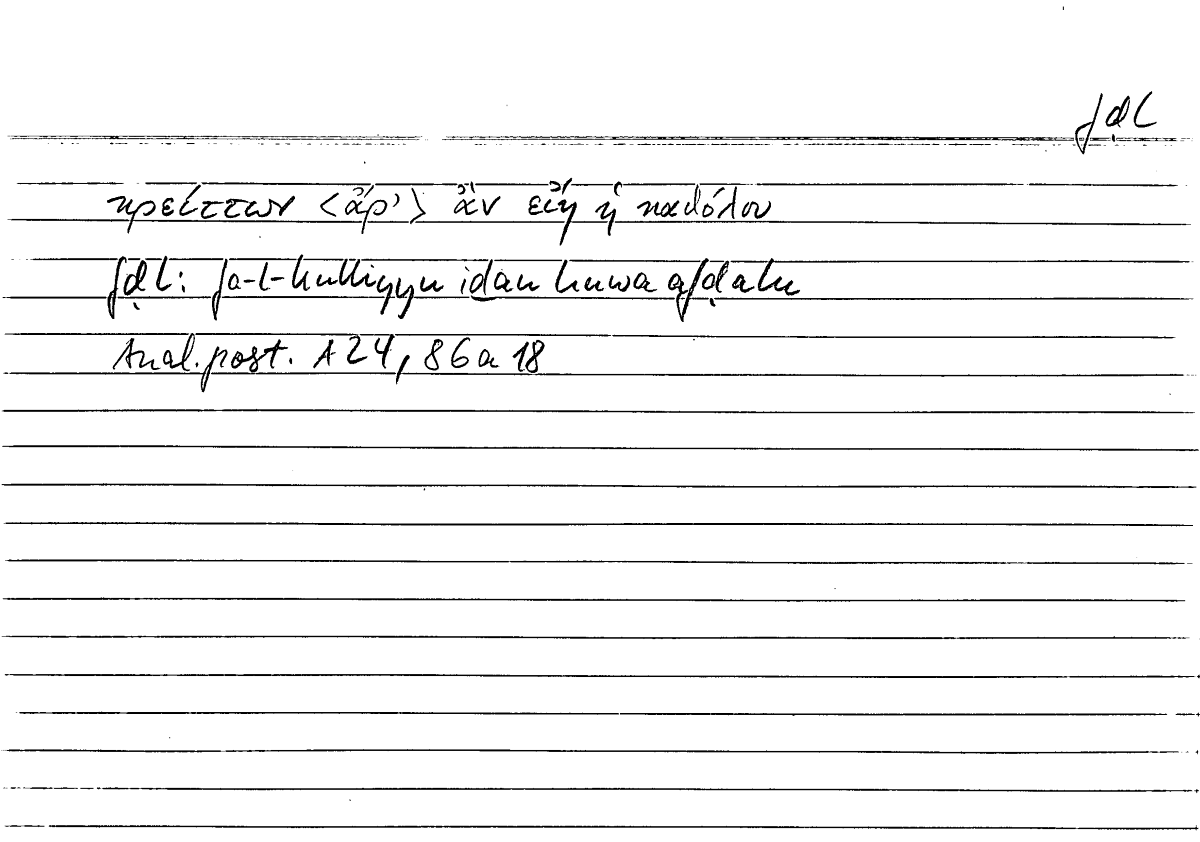 fḍl
κρείττων <ἄρ’> ἂν εἴη ἡ καθόλου
fḍl: fa-l-kulliyyu iḏan huwa afḍalu
Anal. post. A 24, 86 a 18